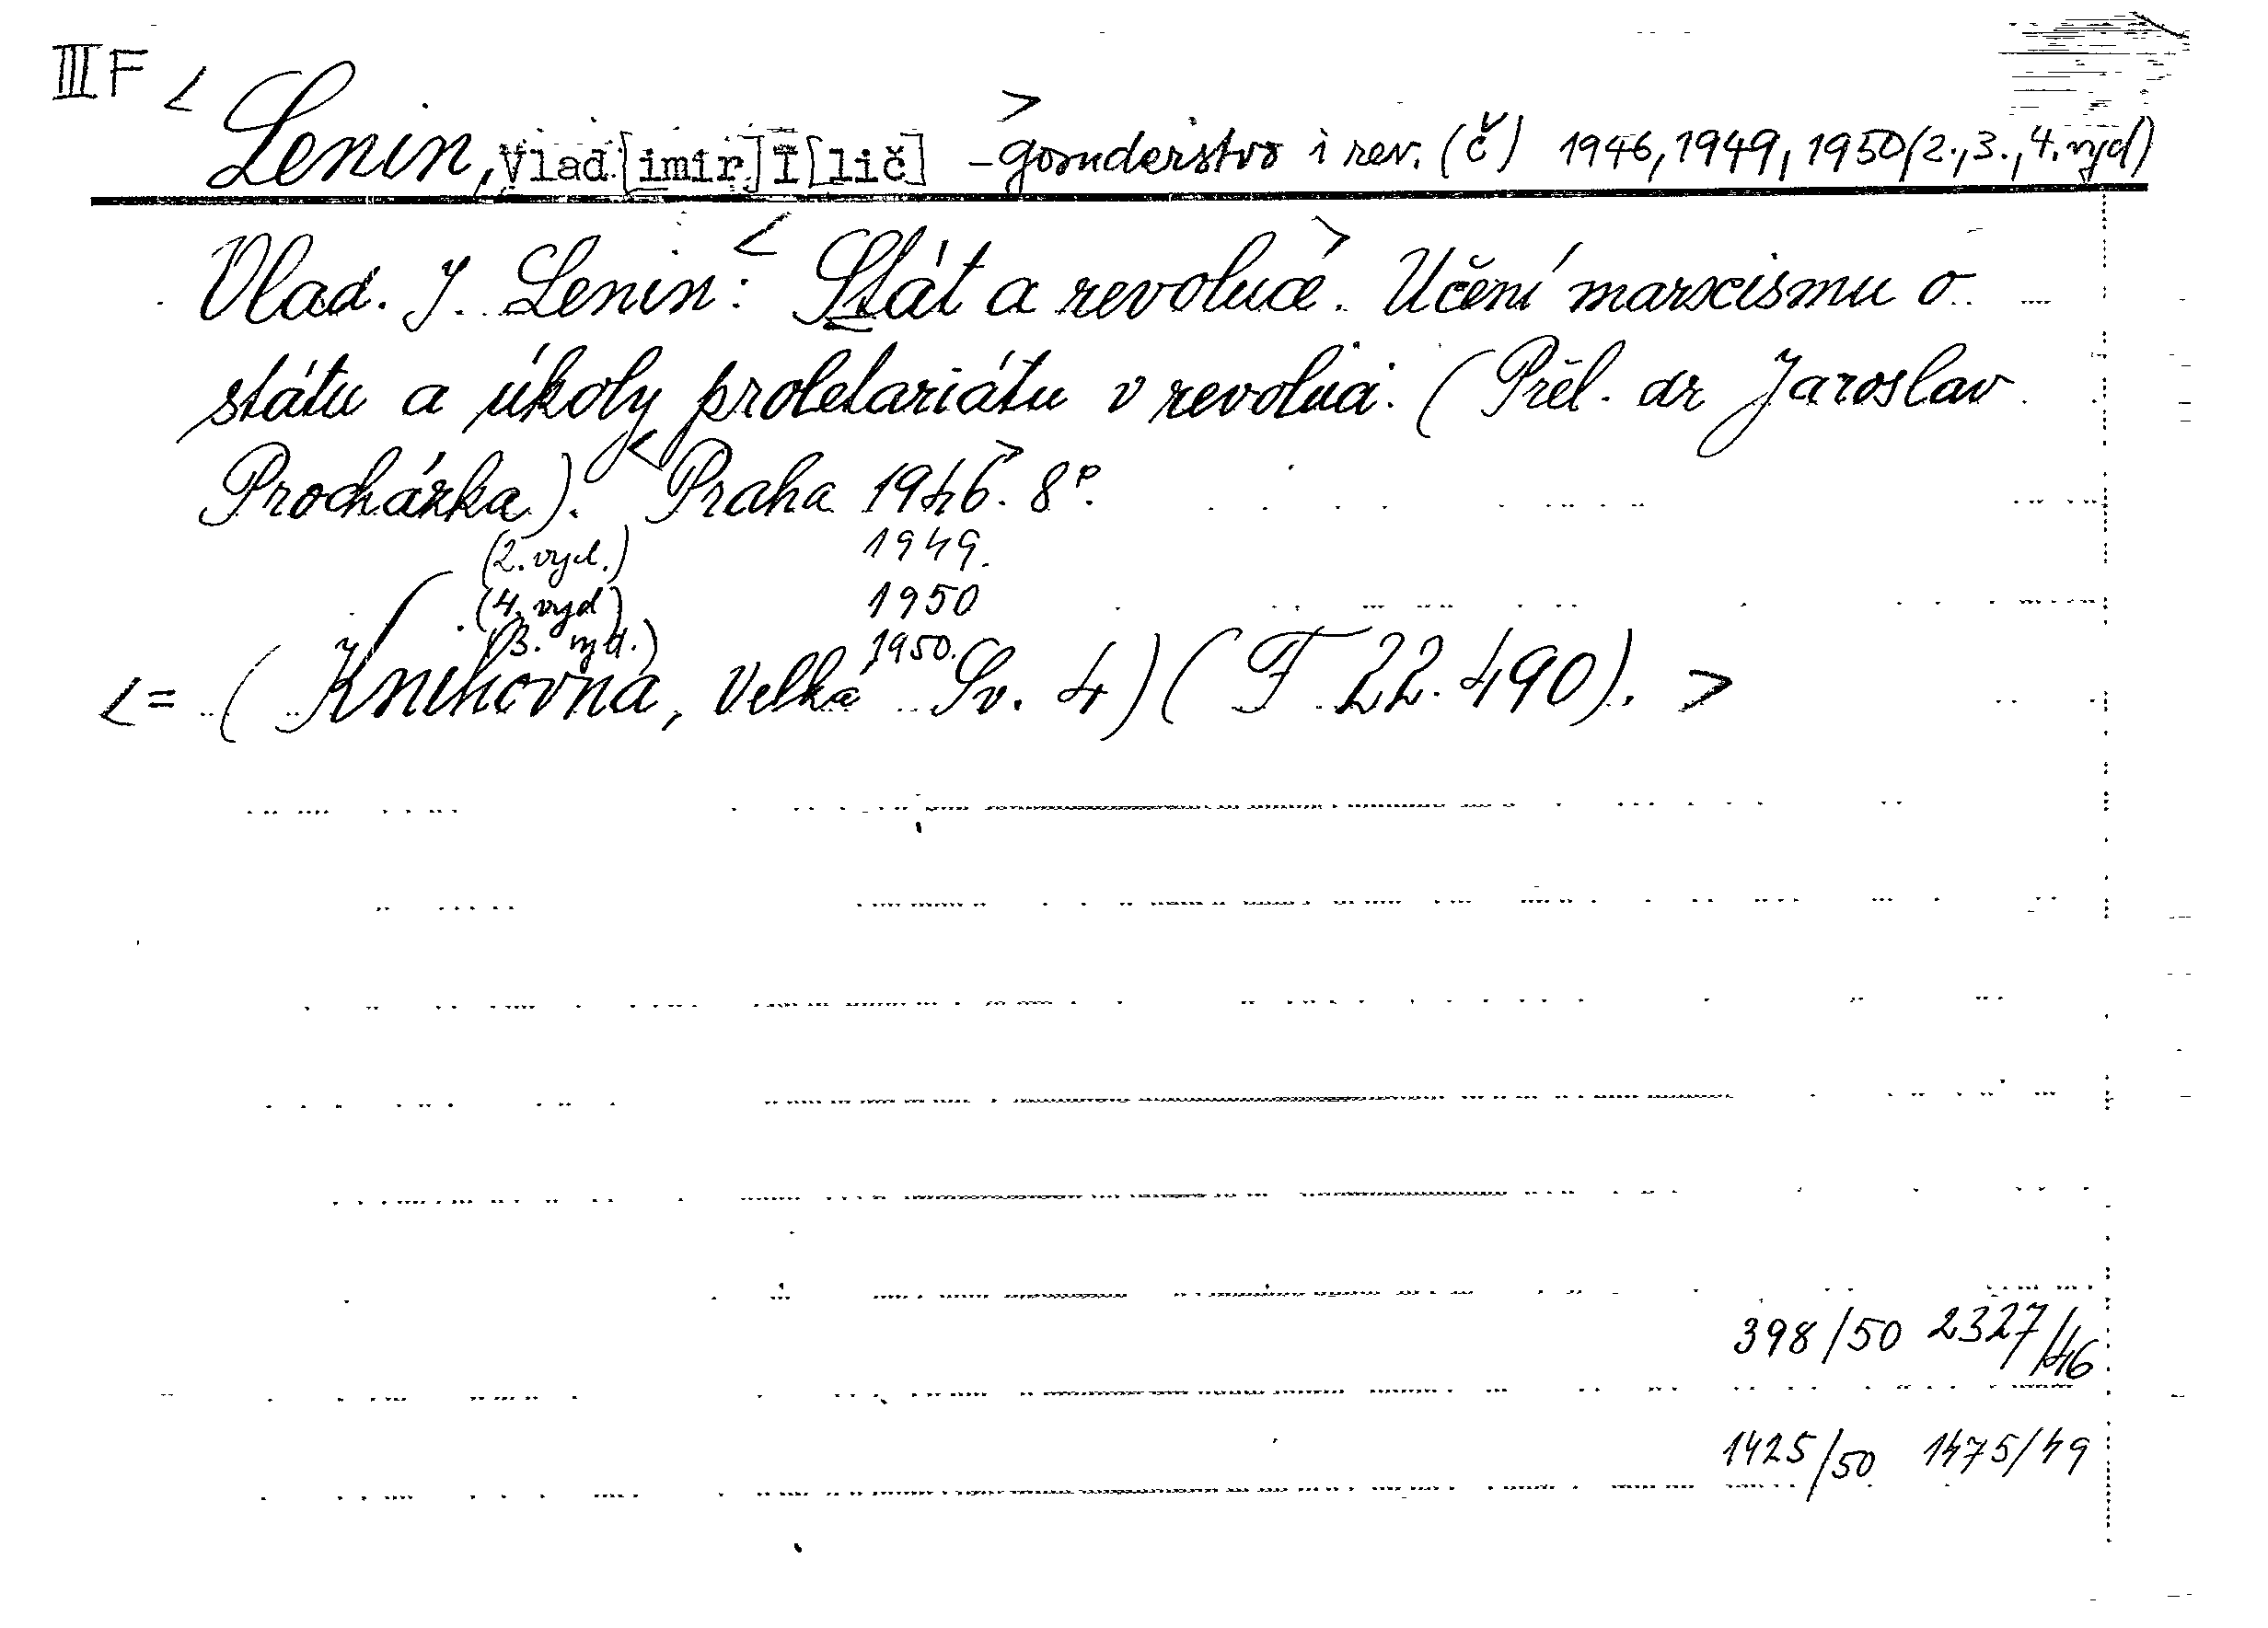 III F < Lenin, Vlad[imir] I[lič] > - gosuderstvo i rev. (č) 1946, 1949, 1950 (2., 3., 4. vyd)
Vlad. J. Lenin: < Stát a revoluce >. Učení marxismu o
státu a úkoly proletariátu v revoluci. (Přel. dr Jaroslav
Procházka). < Praha 1946 >. 8°.
(2. vyd.) 1949.
(4. vyd) 1950
(3. vyd.) 1950.
< = (Knihovna, Velká Sv. 4) (F 22.490). >
398/50 2327/46
1425/50 1475/49